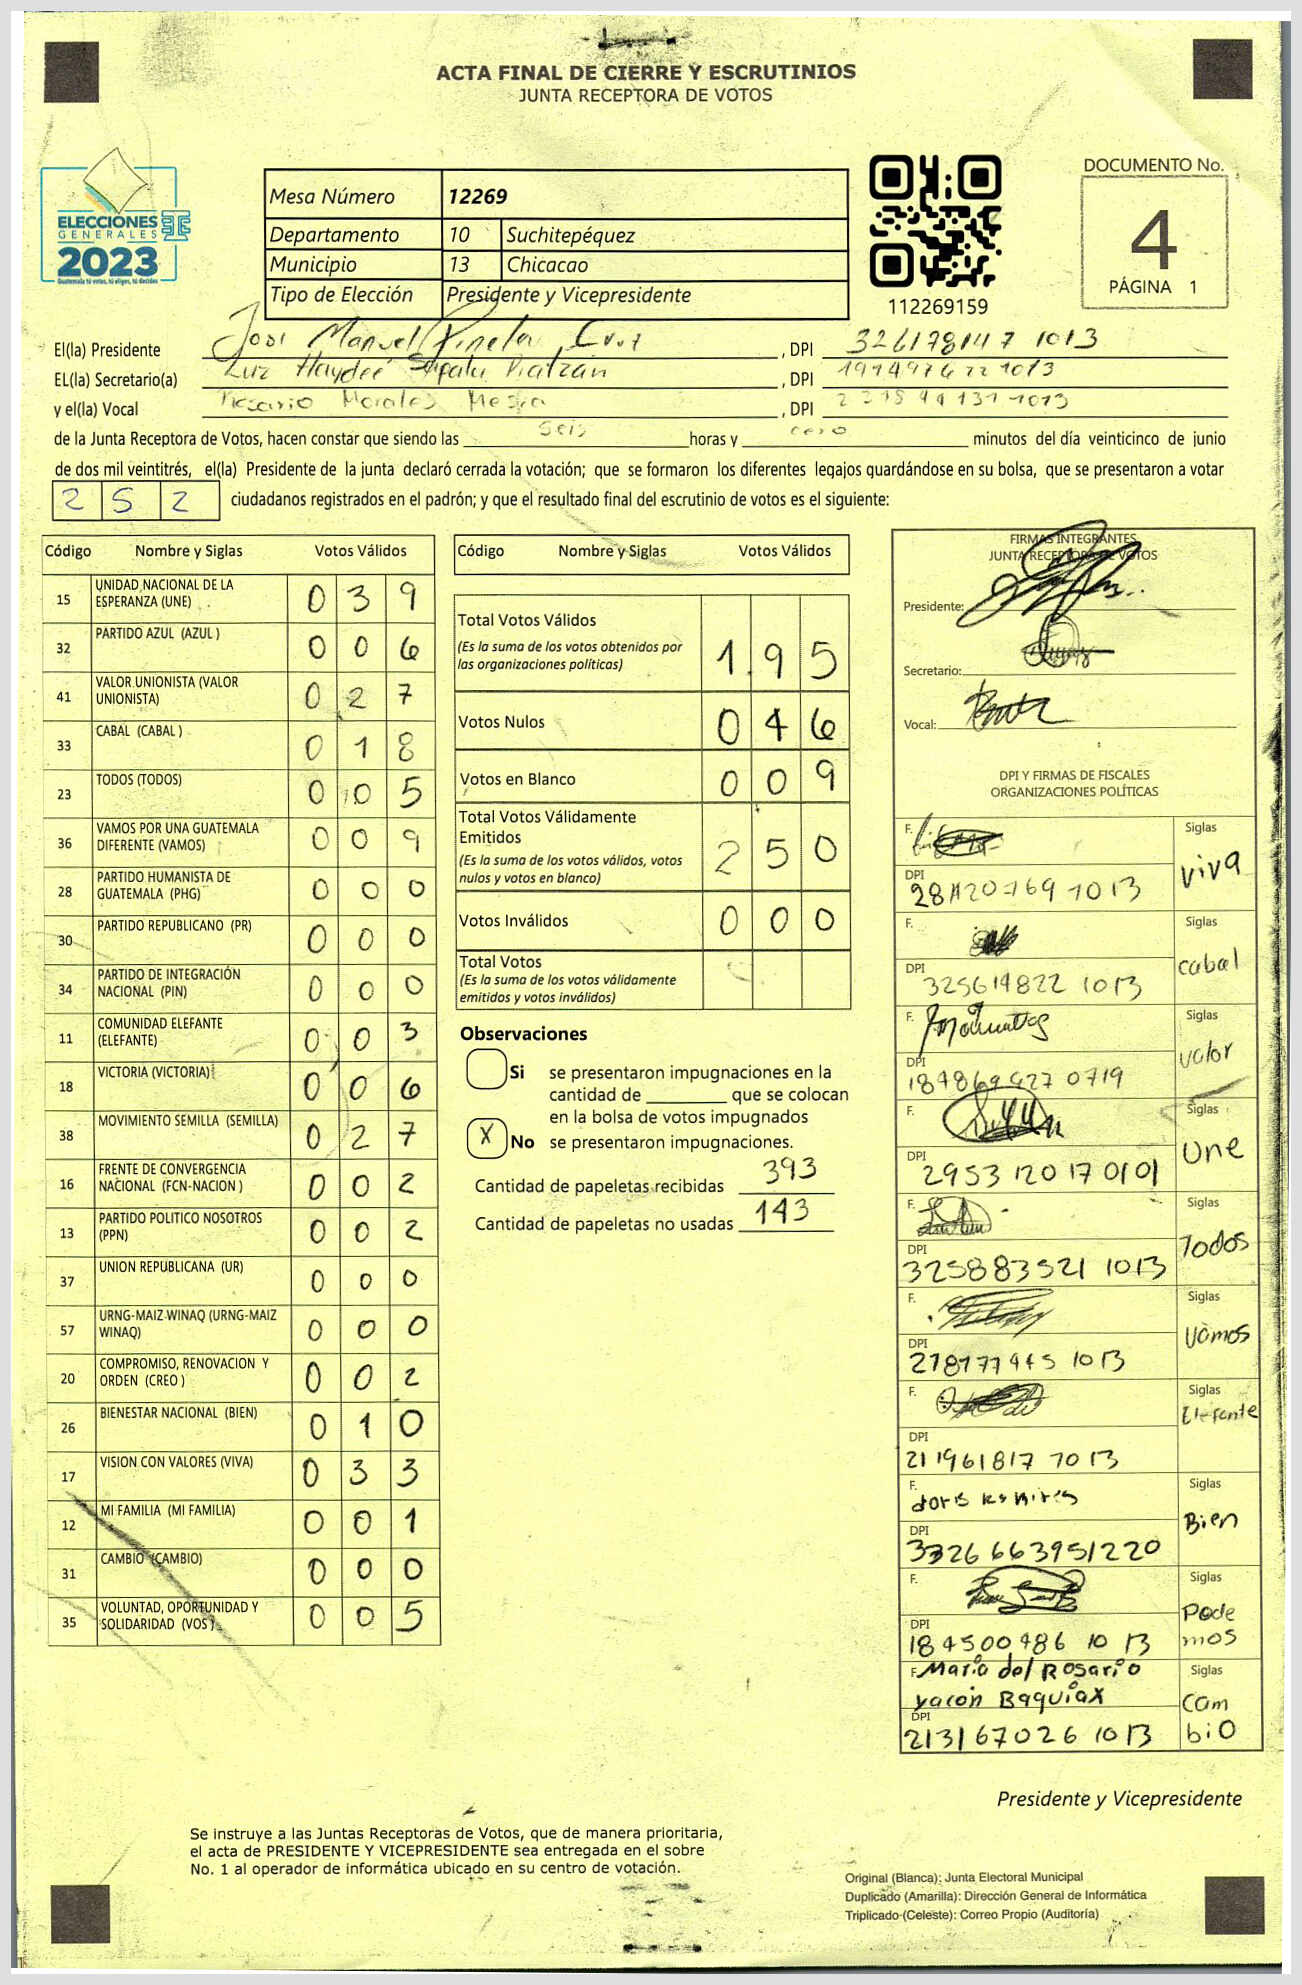 ACTA FINAL DE CIERRE Y ESCRUTINIOS
JUNTA RECEPTORA DE VOTOS
ELECCIONES
GENERALES
2023
Guatemala tú votas, tú eliges, tú decides
Mesa Número 12269
Departamento 10 Suchitepéquez
Municipio 13 Chicacao
Tipo de Elección Presidente y Vicepresidente
112269159
DOCUMENTO No.
4
PÁGINA 1
El(la) Presidente José Manuel Pineda Cruz , DPI 326178147 1013
EL(la) Secretario(a) Luz Haydeé , DPI 1013
y el(la) Vocal Rosario Morales , DPI 1013
de la Junta Receptora de Votos, hacen constar que siendo las seis horas y cero minutos del día veinticinco de junio
de dos mil veintitrés, el(la) Presidente de la junta declaró cerrada la votación; que se formaron los diferentes legajos guardándose en su bolsa, que se presentaron a votar
252 ciudadanos registrados en el padrón; y que el resultado final del escrutinio de votos es el siguiente:
Código Nombre y Siglas Votos Válidos
15 UNIDAD NACIONAL DE LA ESPERANZA (UNE) 0 3 9
32 PARTIDO AZUL (AZUL ) 0 0 6
41 VALOR UNIONISTA (VALOR UNIONISTA) 0 2 7
33 CABAL (CABAL ) 0 1 8
23 TODOS (TODOS) 0 0 5
36 VAMOS POR UNA GUATEMALA DIFERENTE (VAMOS) 0 0 9
28 PARTIDO HUMANISTA DE GUATEMALA (PHG) 0 0 0
30 PARTIDO REPUBLICANO (PR) 0 0 0
34 PARTIDO DE INTEGRACIÓN NACIONAL (PIN) 0 0 0
11 COMUNIDAD ELEFANTE (ELEFANTE) 0 0 3
18 VICTORIA (VICTORIA) 0 0 6
38 MOVIMIENTO SEMILLA (SEMILLA) 0 2 7
16 FRENTE DE CONVERGENCIA NACIONAL (FCN-NACION ) 0 0 2
13 PARTIDO POLITICO NOSOTROS (PPN) 0 0 2
37 UNION REPUBLICANA (UR) 0 0 0
57 URNG-MAIZ-WINAQ (URNG-MAIZ WINAQ) 0 0 0
20 COMPROMISO, RENOVACION Y ORDEN (CREO ) 0 0 2
26 BIENESTAR NACIONAL (BIEN) 0 1 0
17 VISION CON VALORES (VIVA) 0 3 3
12 MI FAMILIA (MI FAMILIA) 0 0 1
31 CAMBIO (CAMBIO) 0 0 0
35 VOLUNTAD, OPORTUNIDAD Y SOLIDARIDAD (VOS ) 0 0 5
Código Nombre y Siglas Votos Válidos
Total Votos Válidos 1 9 5
(Es la suma de los votos obtenidos por
las organizaciones políticas)
Votos Nulos 0 4 6
Votos en Blanco 0 0 9
Total Votos Válidamente
Emitidos 2 5 0
(Es la suma de los votos válidos, votos
nulos y votos en blanco)
Votos Inválidos 0 0 0
Total Votos
(Es la suma de los votos válidamente
emitidos y votos inválidos)
Observaciones
Si se presentaron impugnaciones en la
cantidad de ________ que se colocan
en la bolsa de votos impugnados
X No se presentaron impugnaciones.
Cantidad de papeletas recibidas 393
Cantidad de papeletas no usadas 143
FIRMAS INTEGRANTES
JUNTA RECEPTORA DE VOTOS
Presidente:
Secretario:
Vocal:
DPI Y FIRMAS DE FISCALES
ORGANIZACIONES POLÍTICAS
F. Siglas
viva
DPI 1013
F. Siglas
cabal
DPI 325614822 1013
F. Siglas
valor
DPI 184869427 0719
F. Siglas
Une
DPI 2953 120170101
F. Siglas
Todos
DPI 325883521 1013
F. Siglas
Vamos
DPI 1013
F. Siglas
Elefante
DPI 211961817 1013
F. Siglas
Bien
DPI 3326 663951220
F. Siglas
Podemos
DPI 184500486 1013
F. Maria del Rosario Siglas
yacón Baquiax
Cambio
DPI 213167026 1013
Presidente y Vicepresidente
Se instruye a las Juntas Receptoras de Votos, que de manera prioritaria,
el acta de PRESIDENTE Y VICEPRESIDENTE sea entregada en el sobre
No. 1 al operador de informática ubicado en su centro de votación.
Original (Blanca): Junta Electoral Municipal
Duplicado (Amarilla): Dirección General de Informática
Triplicado (Celeste): Correo Propio (Auditoría)